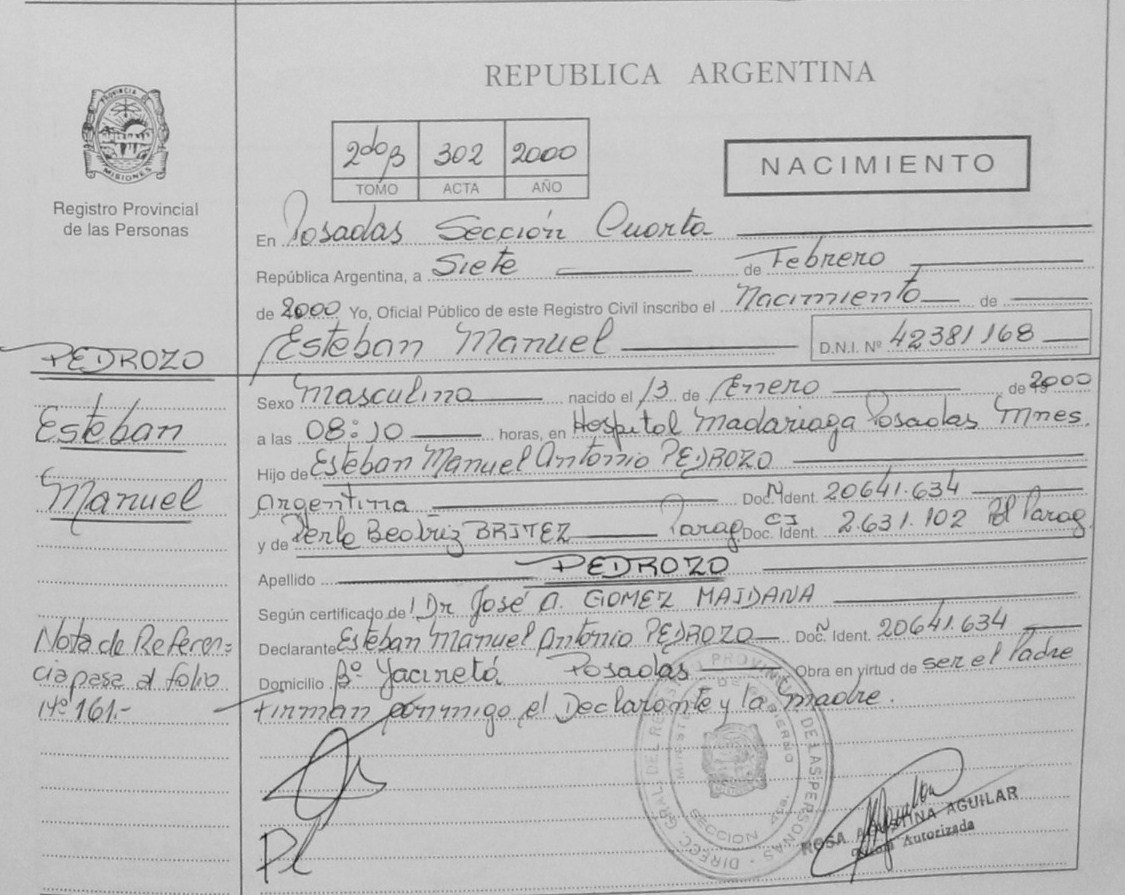 REPUBLICA ARGENTINA
PROVINCIA DE
MISIONES
Registro Provincial
de las Personas
2do B 302 2000
TOMO ACTA AÑO
NACIMIENTO
En Posadas Sección Cuarta
República Argentina, a Siete de Febrero
de 2000 Yo, Oficial Público de este Registro Civil inscribo el Nacimiento de
Esteban Manuel D.N.I. Nº 42381168
PEDROZO
Esteban
Manuel
Sexo Masculino nacido el 13 de Enero de 2000
a las 08:10 horas, en Hospital Madariaga Posadas Mnes.
Hijo de Esteban Manuel Antonio PEDROZO
Argentina Doc. Ident. 20641.634
y de Perla Beatriz BRITEZ Parag. CI Doc. Ident. 2.631.102 Pol Parag.
Apellido PEDROZO
Según certificado de Dr José A. GOMEZ MAIDANA
Declarante Esteban Manuel Antonio PEDROZO Doc. Ident. 20641.634
Domicilio Bº Yaciretá Posadas Obra en virtud de ser el Padre
Firman conmigo el Declarante y la madre.
Nota de Referen=
cia pasa al folio
Nº 161.-
DIRECC. GRAL. DEL REGISTRO PROVINCIAL DE LAS PERSONAS
MINISTERIO DE GOBIERNO
SECCION 4ta
ROSA AGUSTINA AGUILAR
Autorizada